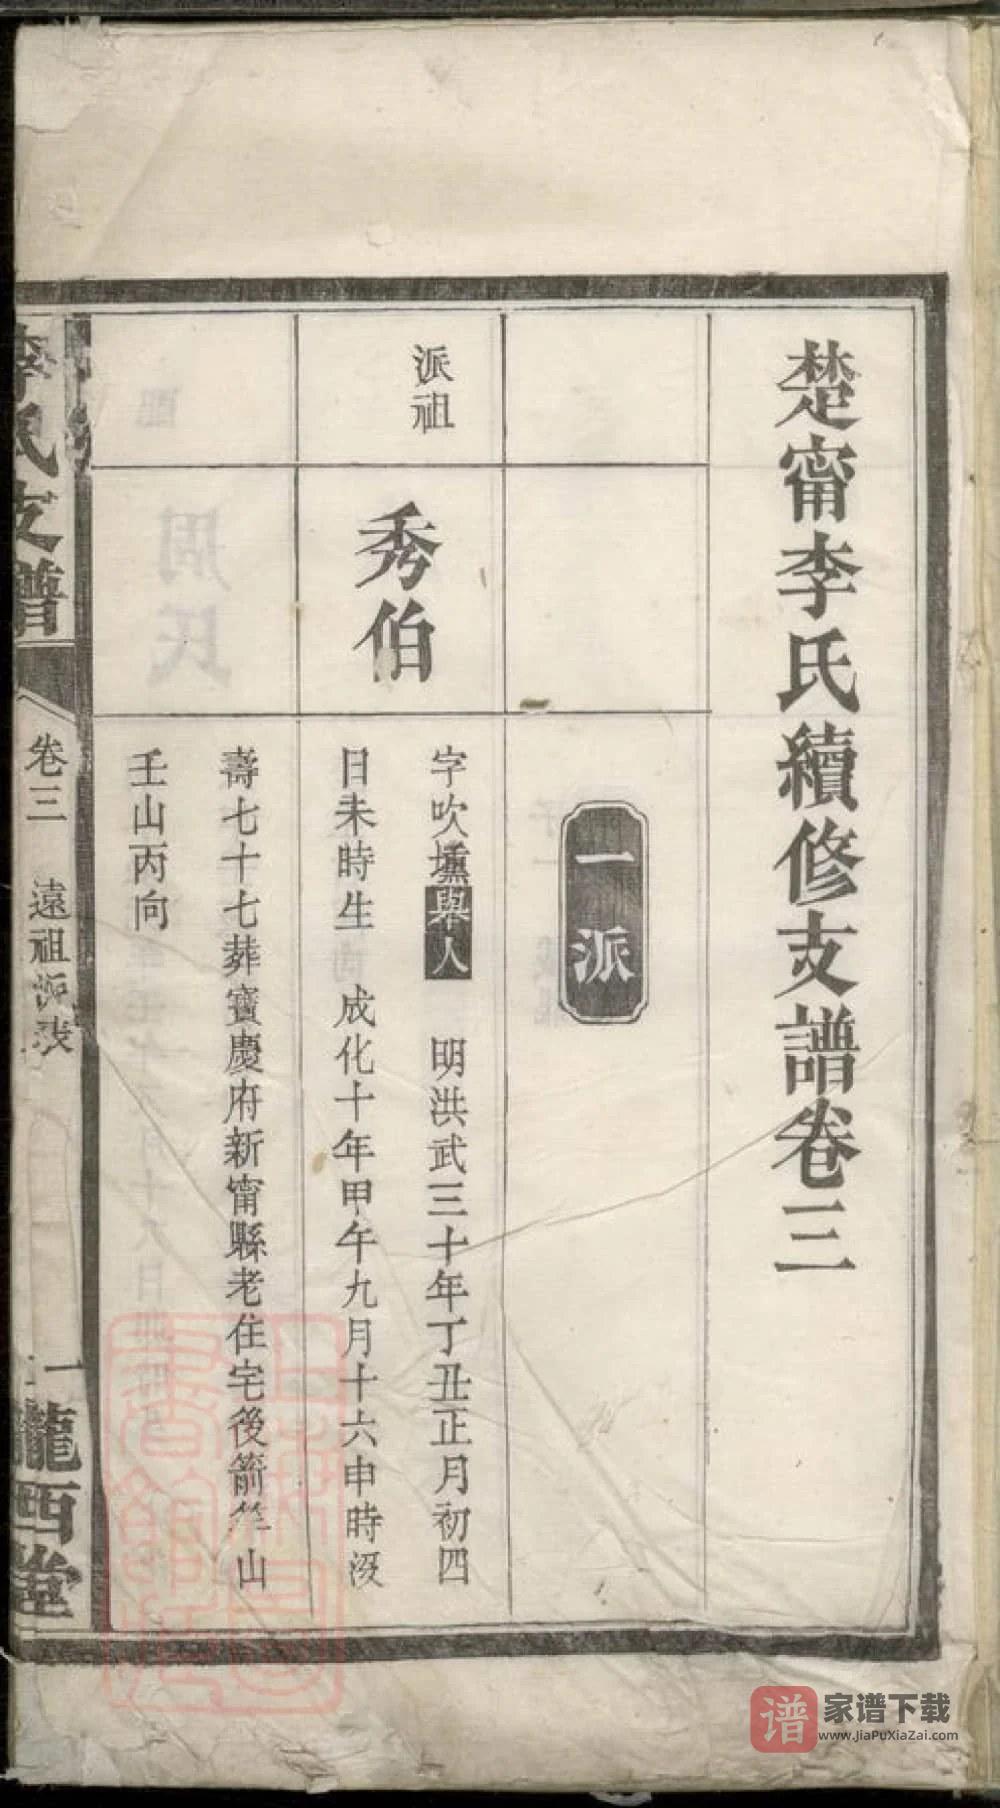 楚甯李氏續修支譜卷三
一派
派祖
秀伯
字吹壎舉人 明洪武三十年丁丑正月初四
日未時生 成化十年甲午九月十六申時沒
壽七十七葬寶慶府新甯縣老住宅後箭竿山
壬山丙向
李氏支譜
卷三 遠祖派表
一
隴西堂
谱
家谱下载
www.JiaPuXiaZai.com